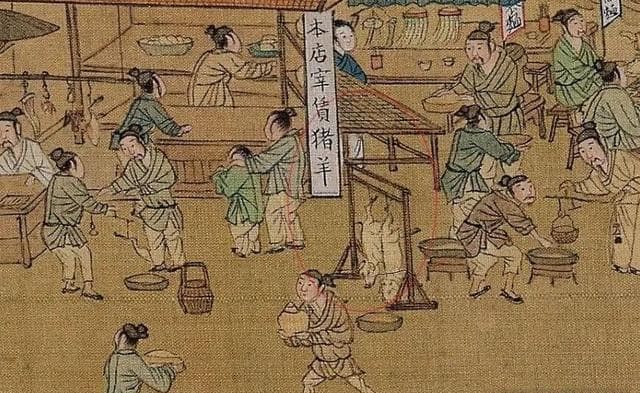 本店宰賃猪羊